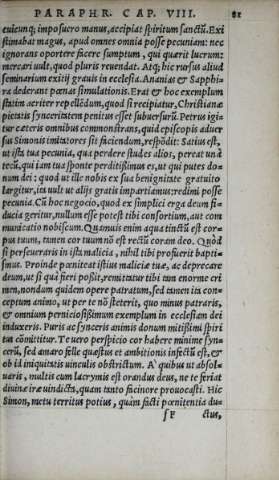 PARAPHR. CAP. VIII. 81
cuicunq; imposuero manus, accipiat spiritum sanctũ. Exi
stimabat magus, apud omnes omnia posse pecuniam: nec
ignorans oportere ficere sumptum, qui quærit lucrum:
mercari uult, quod pluris reuendat. Atq; hic rursus aliud
seminarium exitij grauis in ecclesia. Ananias & Sapphi-
ra dederant pœnas simulationis. Erat & hoc exemplum
statim acriter repellẽdum, quod si recipiatur, Christianæ
pietatis synceritatem penitus esset subuersurũ. Petrus igi-
tur cæteris omnibus commonstrans, quid episcopis aduer
sus Simonis imitatores sit faciendum, respõdit: Satius est,
ut ista tua pecunia, qua perdere studes alios, pereat unà
tecũ, qui iam tua sponte perditissimus es, ut qui putes do-
num dei: quod ut ille nobis ex sua benignitate gratuito
largitur, ita uult ut alijs gratis impartiamus: redimi posse
pecunia. Cũ hoc negocio, quod ex simplici erga deum fi-
ducia geritur, nullum esse potest tibi consortium, aut com
municatio nobiscum. Quamuis enim aqua tinctũ est cor-
pus tuum, tamen cor tuum nõ est rectũ coram deo. Quod
si perseuraris in ista malicia, nihil tibi profuerit bapti-
smus. Proinde pœniteat istius maliciæ tuæ, ac deprecare
deum, ut si qua fieri possit, remittatur tibi tam enorme cri
men, nondum quidem opere patratum, sed tamen ita con-
ceptum animo, ut per te nõ steterit, quo minus patraris,
& omnium perniciosissimum exemplum in ecclesiam dei
induxeris. Puris ac synceris animis donum mitissimi spiri
tus cõmittitur. Te uero perspicio cor habere minime syn-
cerũ, sed amaro felle quæstus et ambitionis infectũ est, &
ob id iniquitatis uinculis obstrictum. A quibus ut absol-
uaris, multis cum lacrymis est orandus deus, ne te feriat
diuinæ iræ uindicta, quam tanto facinore prouocasti. Hic
Simon, metu territus potius, quàm facti pœnitentia du-
f F ctus,